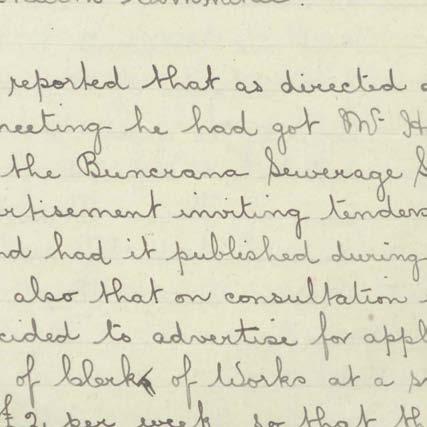 reported that as directed
meeting he had got Mr H
the Buncrana Sewerage S
rtisement inviting tenders
nd had it published during
also that on consultation
cided to advertise for appl
of Clerk of Works at a s
£2. per week, so that th